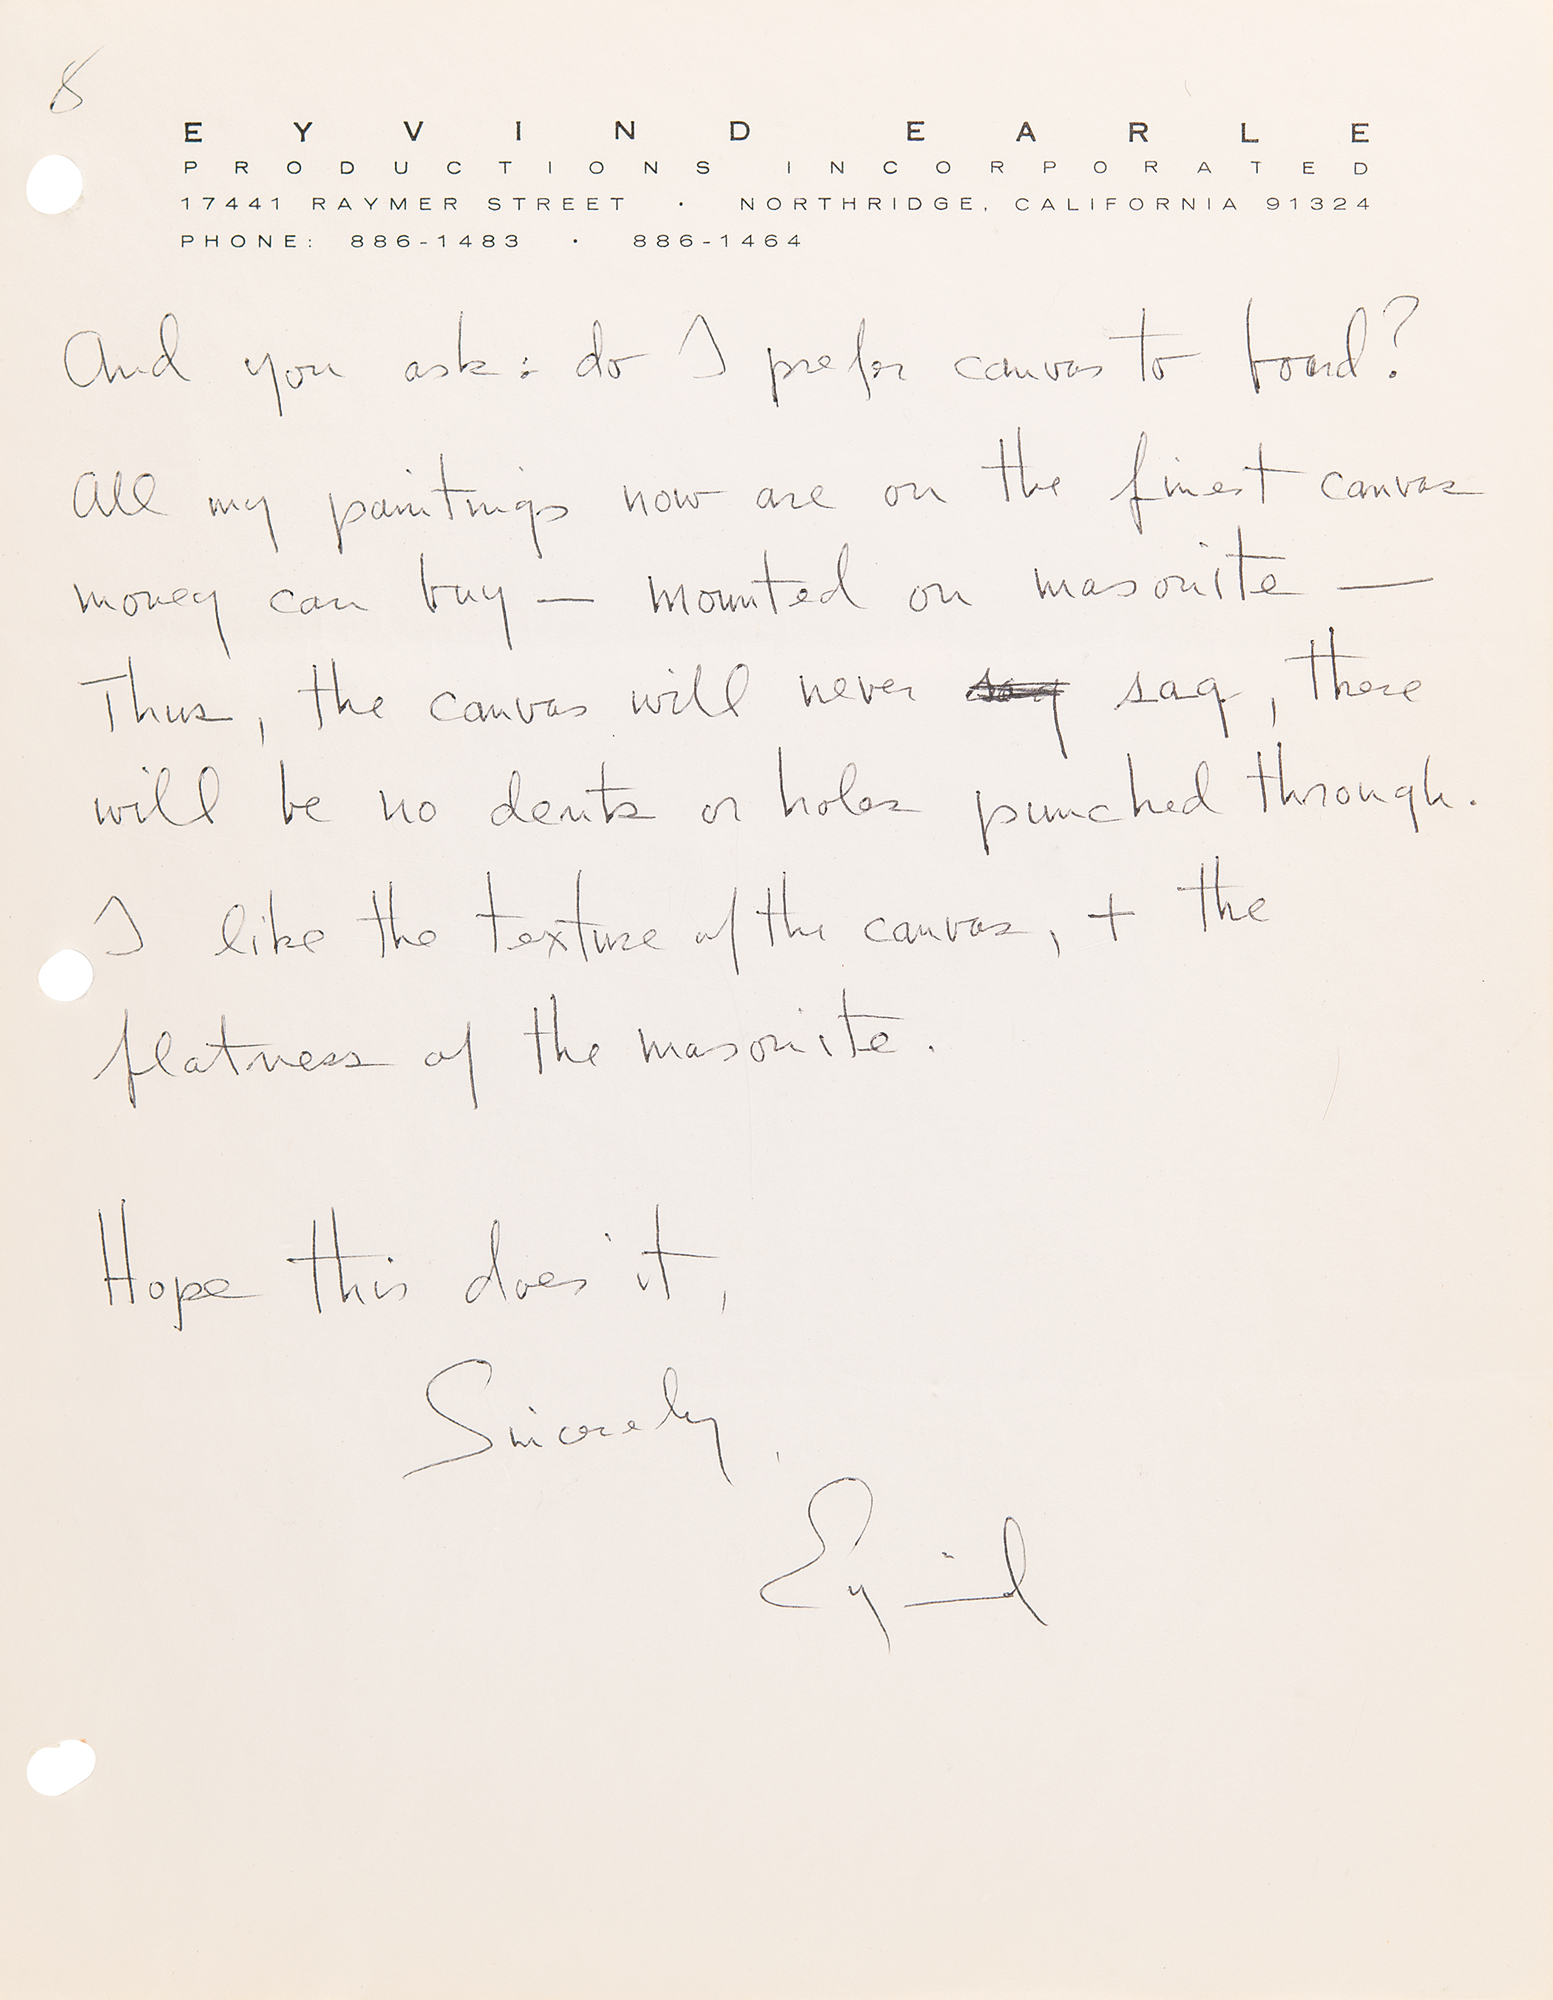 8
EYVIND EARLE
PRODUCTIONS INCORPORATED
17441 RAYMER STREET · NORTHRIDGE, CALIFORNIA 91324
PHONE: 886-1483 · 886-1464
And you ask: do I prefer canvas to board?
All my paintings now are on the finest canvas
money can buy — mounted on masonite —
Thus, the canvas will never sag sag, there
will be no dents or holes punched through.
I like the texture of the canvas, + the
flatness of the masonite.
Hope this does it,
Sincerely,
Eyvind